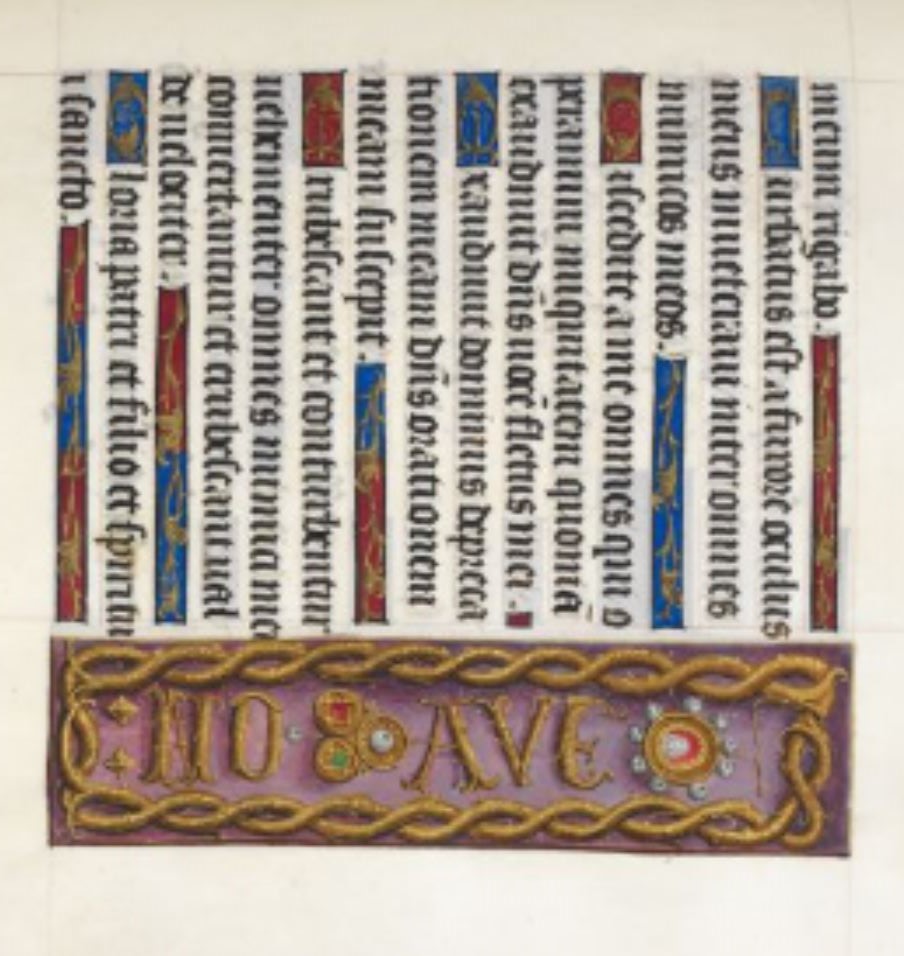 meum rigabo.
Turbatus est a furore oculus
meus inueteraui inter omnes
inimicos meos.
Discedite a me omnes qui o
peramini iniquitatem quoniā
exaudiuit dn̄s uocē fletus mei.
Exaudiuit dominus depreca
tionem meam dn̄s orationem
meam suscepit.
Erubescant et conturbentur
uehementer omnes inimici mei
conuertantur et erubescant ual
de uelociter.
Gloria patri et filio et spiritu
i sancto.
HO AVE